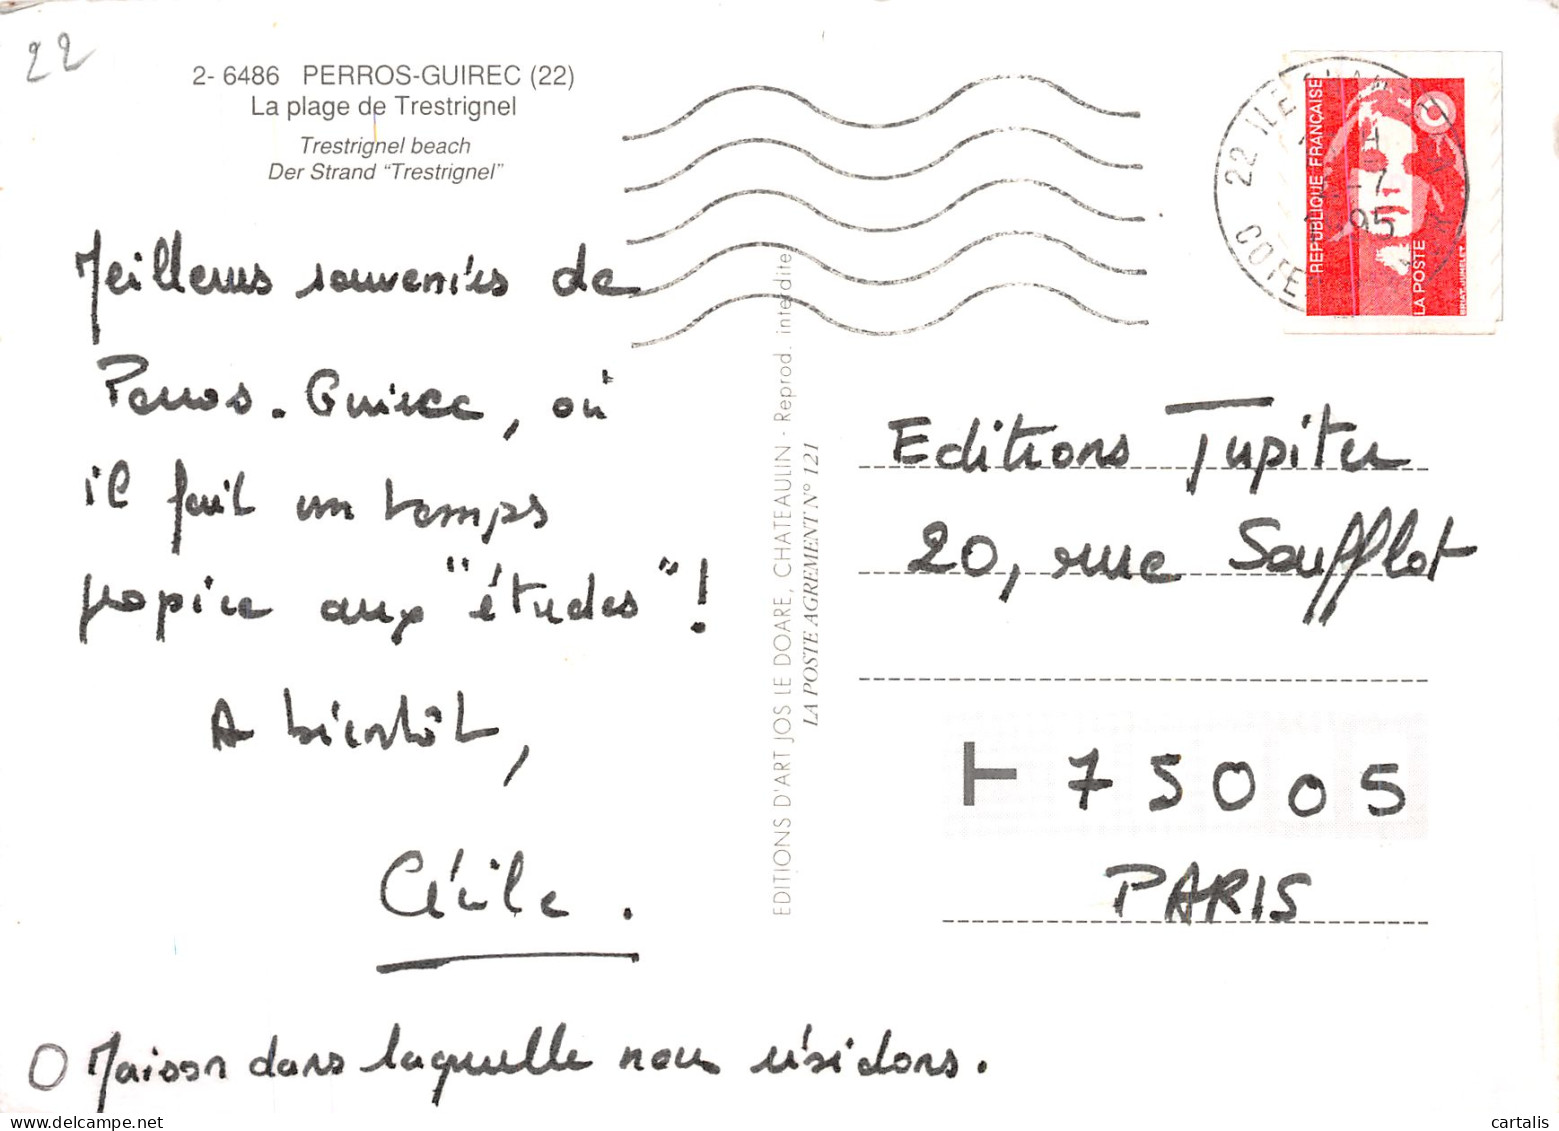 22
2- 6486 PERROS-GUIREC (22)
La plage de Trestrignel
Trestrignel beach
Der Strand "Trestrignel"
Meilleurs souvenirs de
Perros-Guirec, où
il fait un temps
propice aux "études"!
A bientôt,
Cécile.
O Maison dans laquelle nous résidons.
EDITIONS D'ART JOS LE DOARE, CHATEAULIN - Reprod. interdite
LA POSTE AGREMENT N° 121
22
COTE
-7
95
REPUBLIQUE FRANÇAISE
LA POSTE
Editions Jupiter
20, rue Soufflot
75005
PARIS
cartalis